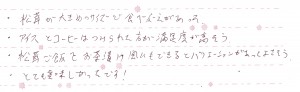 ・松茸が大きめのサイズで食べごたえがあった
・アイスとコーヒーはつけられた方が満足度が高そう
・松茸ご飯をお茶漬け風にもできるとバリエーションがあってよさそう
・とても美味しかったです！